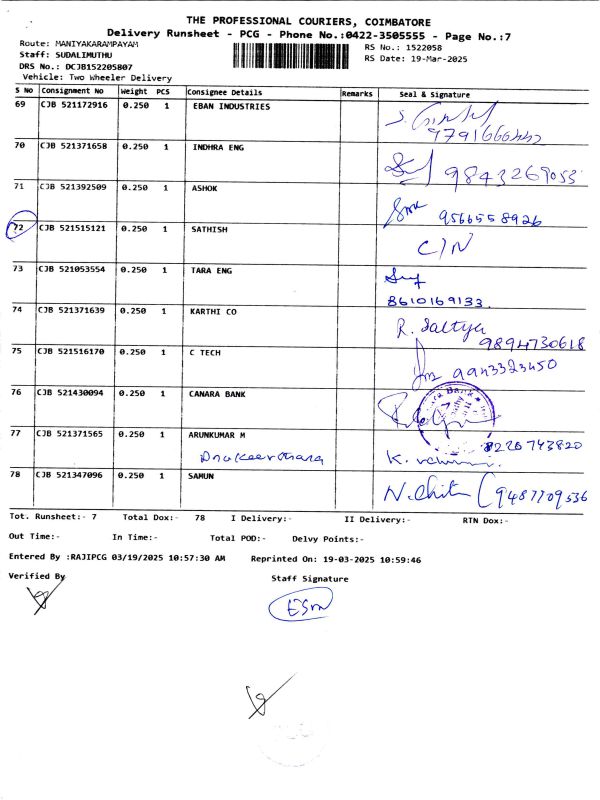 THE PROFESSIONAL COURIERS, COIMBATORE
Delivery Runsheet - PCG - Phone No.:0422-3505555 - Page No.:7
Route: MANIYAKARAMPAYAM
RS No.: 1522058
Staff: SUDALIMUTHU
RS Date: 19-Mar-2025
DRS No.: DCJB152205807
Vehicle: Two Wheeler Delivery
S No Consignment No Weight PCS Consignee Details Remarks Seal & Signature
69 CJB 521172916 0.250 1 EBAN INDUSTRIES
70 CJB 521371658 0.250 1 INDHRA ENG
9843269053
71 CJB 521392509 0.250 1 ASHOK
9566558926
72 CJB 521515121 0.250 1 SATHISH
C/N
73 CJB 521053554 0.250 1 TARA ENG
8610169133.
74 CJB 521371639 0.250 1 KARTHI CO
R. Saltya
9894730618
75 CJB 521516170 0.250 1 C TECH
9943323450
76 CJB 521430094 0.250 1 CANARA BANK
77 CJB 521371565 0.250 1 ARUNKUMAR M
8220743820
78 CJB 521347096 0.250 1 SAMUN
9487709536
Tot. Runsheet:- 7 Total Dox:- 78 I Delivery:- II Delivery:- RTN Dox:-
Out Time:- In Time:- Total POD:- Delvy Points:-
Entered By :RAJIPCG 03/19/2025 10:57:30 AM Reprinted On: 19-03-2025 10:59:46
Verified By Staff Signature
ESM